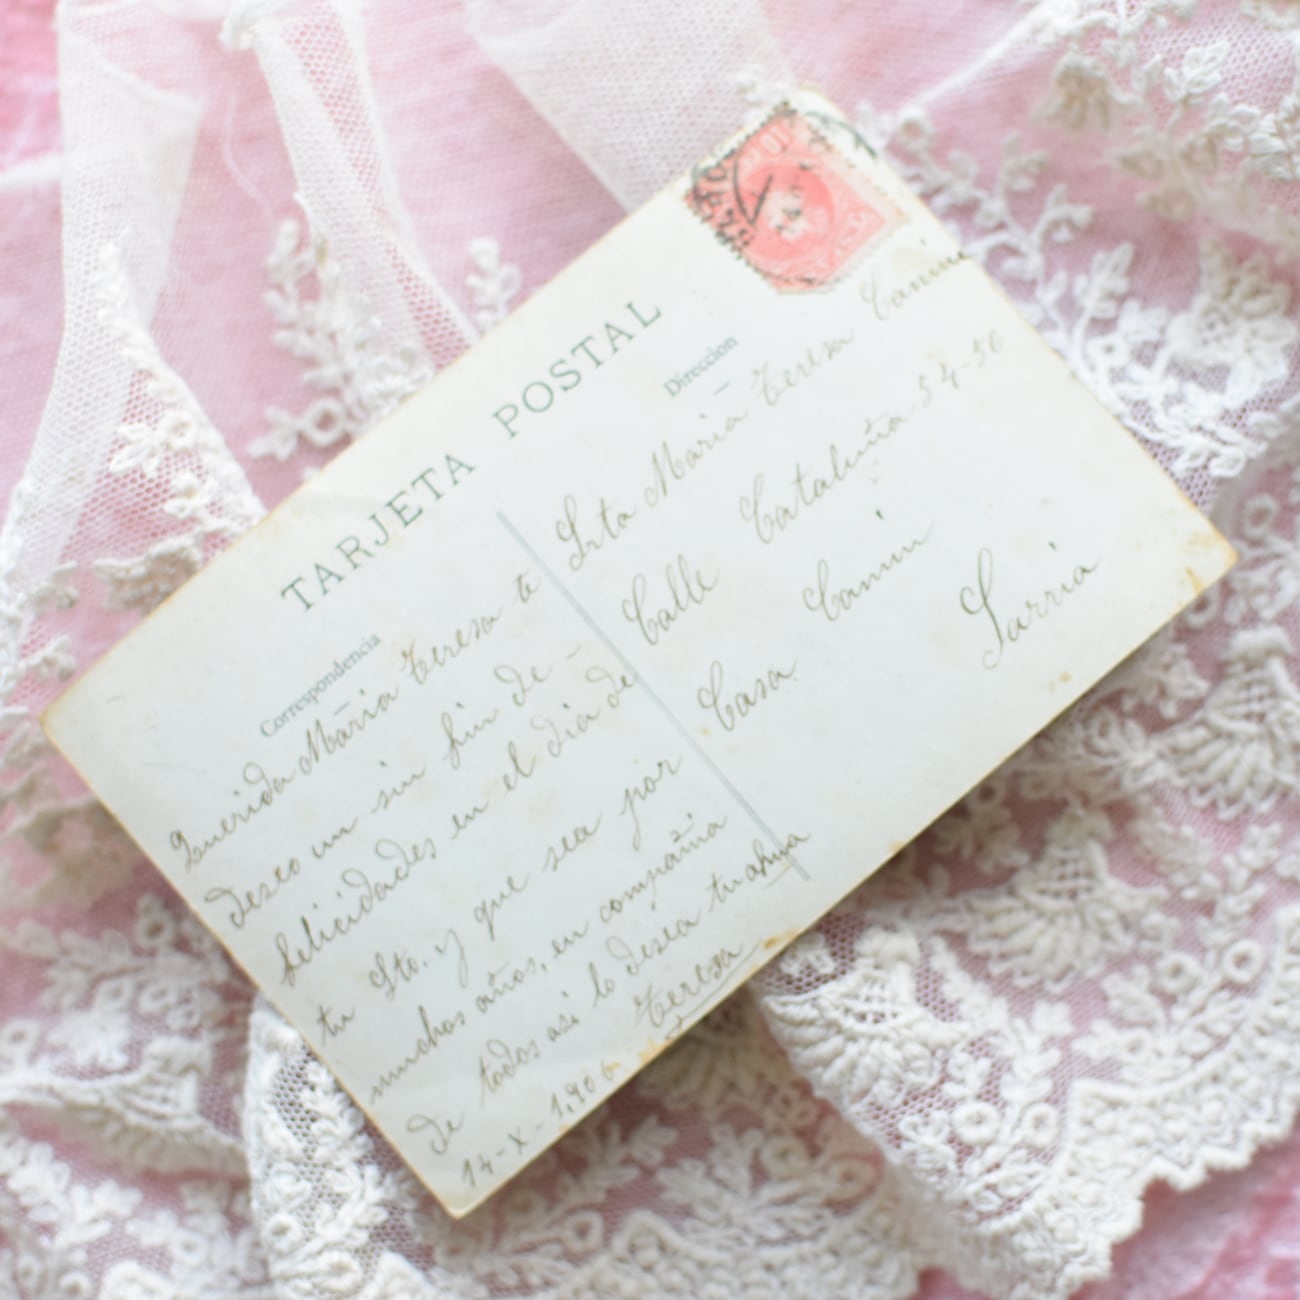 TARJETA POSTAL
Correspondencia
Querida Maria Teresa te
deseo un sin fin de -
felicidades en el dia de
tu Sto. y que sea por
muchos años, en compañia
de todos asi lo desea tu ahua
Teresa
14-X-1,906
Direccion
Srta Maria Teresa Camin
Calle Cataluña 54-56
Casa Camin
Sarria
10